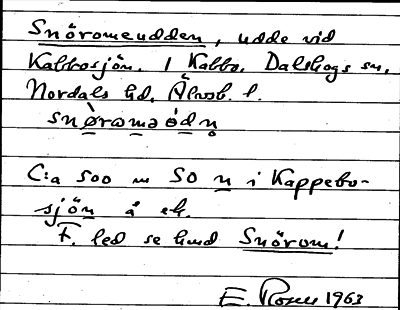 Snöromeudden, udde vid
Kabbosjön. 1 Kabbo, Dalskogs sn,
Nordals hd, Älvsb. l.
snø̀roməòdn̥
C:a 500 m SO n i Kappebo-
sjön å ek.
F. led se hmd Snörom!
E. 1963